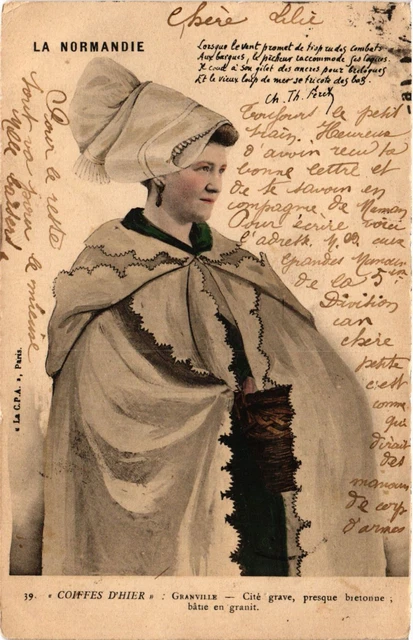 Chère Lilie
LA NORMANDIE
Lorsque le vent promet de trop rudes combats
Aux barques, le pêcheur raccommode ses loques.
Il coud à son gilet des ancres pour breloques
Et le vieux loup de mer se tricote des bas.
Ch. Th. Féret
Toujours le petit
train. Heureux
d'avoir reçu ta
bonne lettre et
de te savoir en
compagnie de Maman
Pour écrire voici
l'adresse. M. aux
Grandes
de la 5e
Division
car
chère
petite
c'est
comme
qui
dirait
des
manœuv
de corp
d'armée
Pour le reste
tout va pour le mieux
Mille baisers
« La C.P.A. », Paris.
39. « COIFFES D'HIER » : GRANVILLE — Cité grave, presque bretonne ;
bâtie en granit.